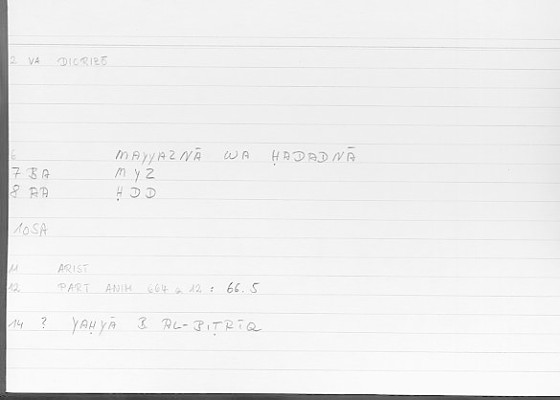 2 VA DIORIZE
6 MAYYAZNĀ WA ḤADADNĀ
7 BA MYZ
8 AA ḤDD
10SA
11 ARIST
12 PART ANIM 664 a 12 : 66.5
14 ? YAḤYĀ B AL-BIṬRĪQ